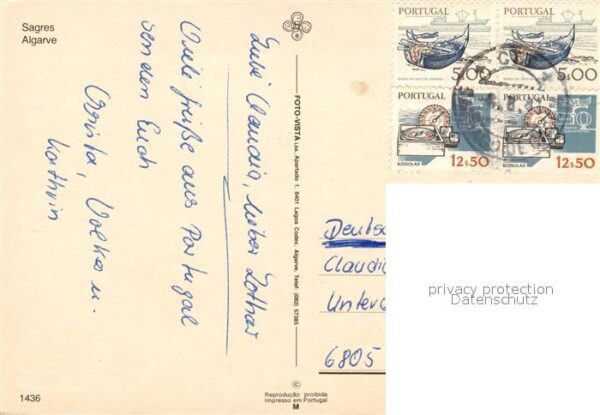 Sagres
Algarve
Liebe Claudia, lieber Lothar
Viele Grüße aus Portugal
senden Euch
Christa, Volker u.
Kathrin
FOTO-VISTA Lda. Apartado 1. 8401 Lagoa Codex. Algarve. Telef: (082) 57385
PORTUGAL
PORTUGAL
5.00
5.00
PORTUGAL
PORTUGAL
BÚSSOLAS
12$50
BÚSSOLAS
12$50
Deutsc
Claudia
Unter
6805
privacy protection
Datenschutz
1436
©
Reprodução proibida
Impresso em Portugal
M